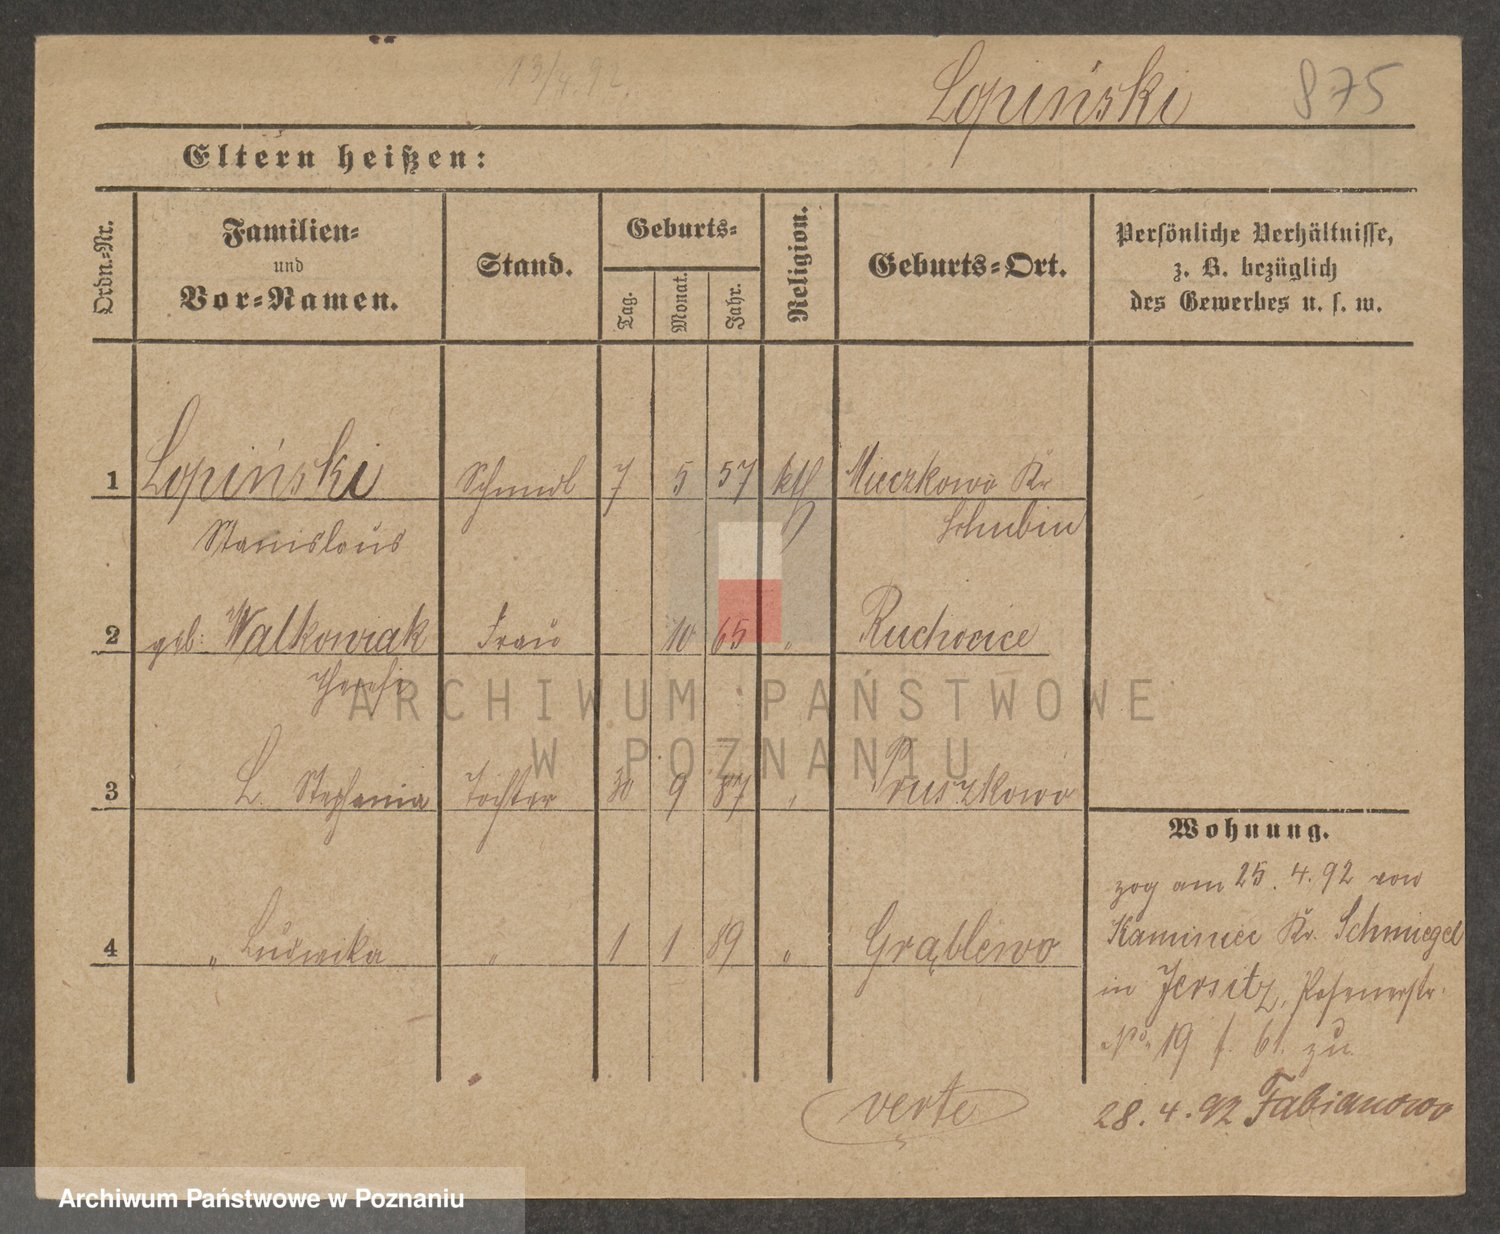 13/4.92.
Lopiński 875
Eltern heißen:
Ordn.-Nr.
Familien-
und
Vor-Namen.
Stand.
Geburts-
Tag.
Monat.
Jahr.
Religion.
Geburts-Ort.
Persönliche Verhältnisse,
z. B. bezüglich
des Gewerbes u. s. w.
1 Lopiński Schmied 7 5 57 kth Mieczkowo Kr
Stanislaus Schubin
2 geb: Walkowiak Frau 10 65 " Ruchocice
3 L. Stephania Tochter 30 9 87 " Pruszkowo
4 " Ludwika " 1 1 89 " Grąblewo
Wohnung.
zog am 25. 4. 92 von
Kaminiec Kr. Schmiegel
in Jersitz, Posenerstr.
No 19 f. 61. zu
28. 4. 92 Fabianowo
verte
ARCHIWUM PAŃSTWOWE
W POZNANIU
Archiwum Państwowe w Poznaniu